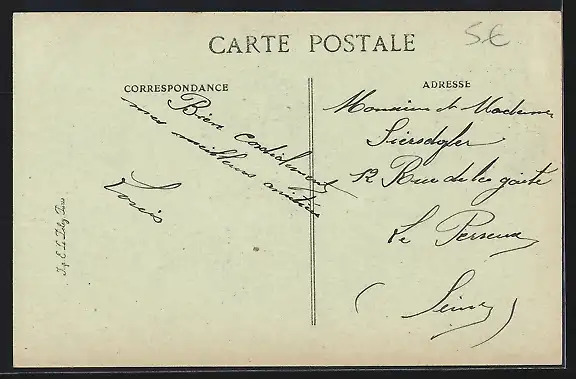 CARTE POSTALE
5 €
CORRESPONDANCE
ADRESSE
Bien cordialement
mes meilleurs amitiés
Monsieur et Madame
12 Rue de la gaité
Le Perreux
(Seine)
Imp. E. Le Deley Paris